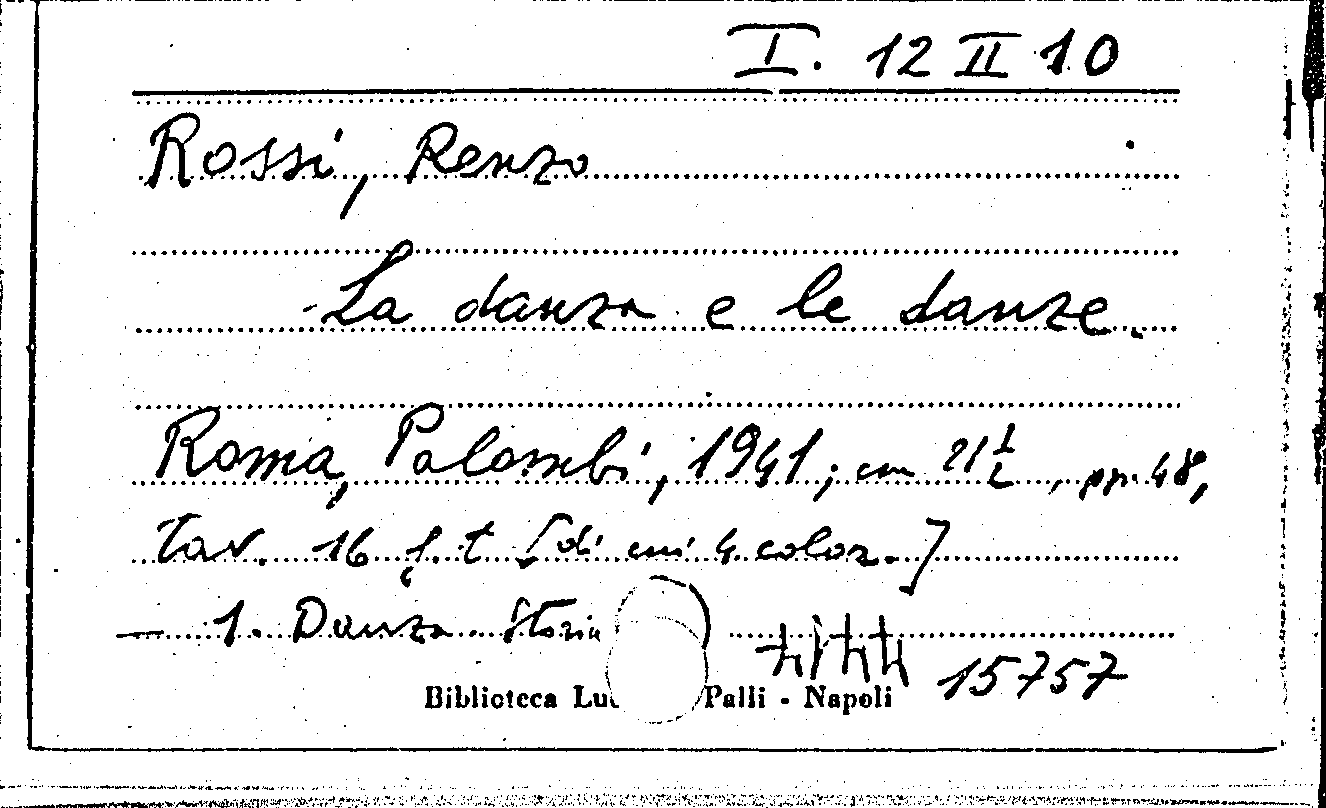 I. 12 II 10
Rossi, Renzo
La danza e le danze.
Roma, Palombi, 1941; cm 21½, pp. 48,
tav. 16 f. t [di cui 4 color.]
— 1. Danza. Storia
15757
Biblioteca Luc Palli - Napoli